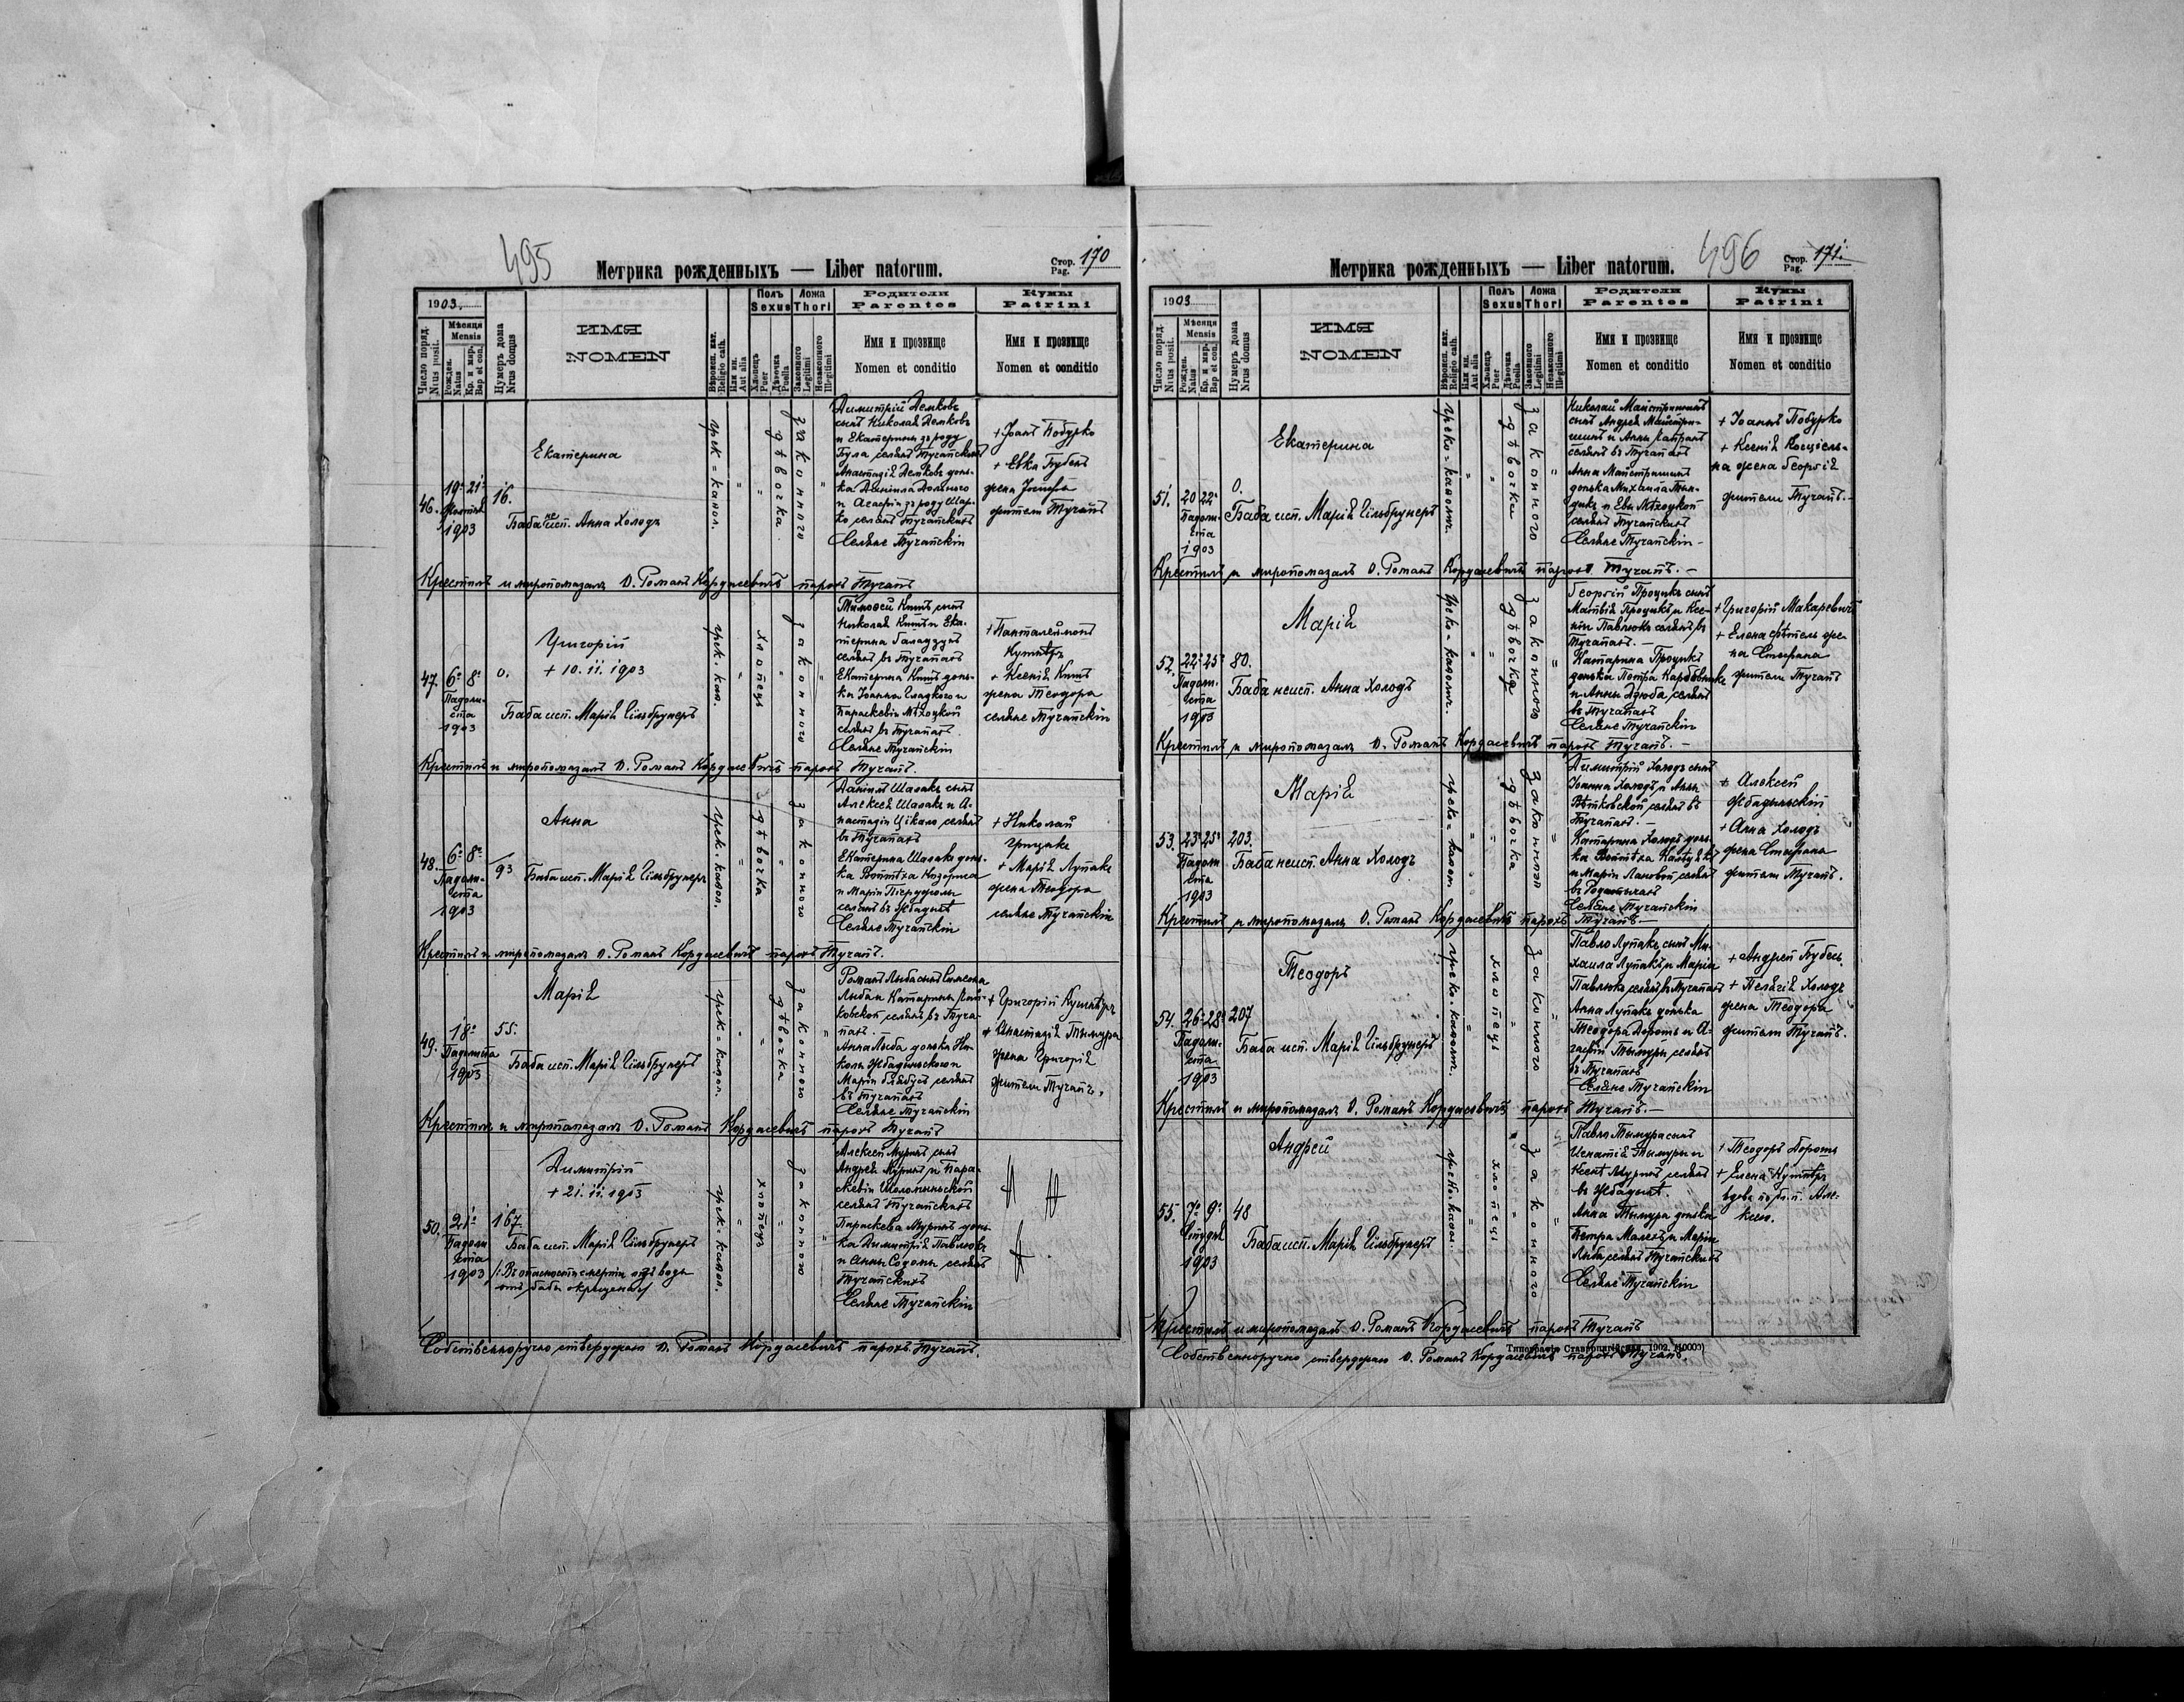 495
Метрика рожденныхъ — Liber natorum.
Стор. Pag. 170
1903.
Число поряд. Nrus posit.
Мѣсяця Mensis
Рожден. Natus
Кр. и мѵр. Bap et con.
Нумеръ дома Nrus domus
ИМЯ
NOMEN
Вѣроисп. кат. Religio cath.
Или ин. Aut alia
Полъ Sexus
Хлопець Puer
Дѣвочка Puella
Ложа Thori
Законного Legitimi
Незаконного Illegitimi
Родители
Parentes
Имя и прозвище
Nomen et conditio
Кумы
Patrini
Имя и прозвище
Nomen et conditio
46.
19. 21.
1903
16.
Екатерина
Баба неисп. Анна Холодъ
грек = катол.
дѣвочка
законного
Димитрій Демковъ
сынъ Николая Демковъ
и Екатерины зъ роду
Була селянъ Тучапскихъ
Анастазія Демковъ донь-
ка Даніила
и Агафіи зъ роду Шар-
ко селянъ Тучапскихъ
Селяне Тучапскіи
+ Іоанъ Побурко
+ Евка Бубесъ
жена Іосифа
жители Тучапъ
Крестилъ и миропомазалъ О. Романъ Кордасевичъ парохъ Тучапъ
47.
6. 8.
Падоли-
ста
1903
0.
Григорій
+ 10. 11. 1903
Баба исп. Марія Гильбрунеръ
грек. кат.
хлопець
законного
Тимофей Кишъ сынъ
Николая Кишъ и Ека-
терина
селянъ въ Тучапахъ
Екатерина Кишъ донь-
ка Іоанна Гладкого и
Параскевіи Мѣхоцкой
селянъ въ Тучапахъ.
Селяне Тучапскіи
+ Панталеймонъ
Кушнѣръ
+ Ксенія Кишъ
жена Теодора
селяне Тучапскіи
Крестилъ и миропомазалъ О. Романъ Кордасевичъ парохъ Тучапъ.
48.
6. 8.
Падоли-
ста
1903
93
Анна
Баба исп. Марія Гильбрунеръ
грек. катол.
дѣвочка
законного
Даніилъ Шалакъ сынъ
Алексея Шалакъ и А-
настазіи Цікало селянъ
въ Тучапахъ
Екатерина Шалакъ донь-
ка Войтѣха
и Маріи
селянъ въ
Селяне Тучапскіи
+ Николай
Грицакъ
+ Марія Лупакъ
жена Теодора
селяне Тучапскіи
Крестилъ и миропомазалъ О. Романъ Кордасевичъ парохъ Тучапъ.
49.
18.
Падолиста
1903
55.
Марія
Баба исп. Марія Гильбрунеръ
грек = катол.
дѣвочка
законного
Романъ Лыба сынъ Симеона
Лыба и Катарины
ковской селянъ въ Туча-
пахъ. —
Анна Лыба донька Ни-
колы
Маріи селянъ
въ Тучапахъ
Селяне Тучапскіи
+ Григорій Кушнѣръ
+ Анастазія Тымура
жена Григорія
жители Тучапъ.
Крестилъ и миропомазалъ О. Романъ Кордасевичъ парохъ Тучапъ
50.
21.
Падоли
ста
1903
167
Димитрій
+ 21. 11. 1903
Баба исп. Марія Гильбрунеръ
/: Въ опасности смерти отъ воды
отъ бабы окрещеный
грек. катол.
хлопець
законного
Алексей Муринъ сынъ
Андрея Муринъ и Пара-
скевіи Шоломыньской
селянъ Тучапскихъ
Параскева Муринъ донь-
ка Дымитрія Павлюкъ
и Анны селянъ
Тучапскихъ
Селяне Тучапскіи
Собственноручно ствердждаю О. Романъ Кордасевичъ парохъ Тучапъ.
496
Метрика рожденныхъ — Liber natorum.
Стор. Pag. 171.
1903
Число поряд. Nrus posit.
Мѣсяця Mensis
Рожден. Natus
Кр. и мѵр. Bap et con.
Нумеръ дома Nrus domus
ИМЯ
NOMEN
Вѣроисп. кат. Religio cath.
Или ин. Aut alia
Полъ Sexus
Хлопець Puer
Дѣвочка Puella
Ложа Thori
Законного Legitimi
Незаконного Illegitimi
Родители
Parentes
Имя и прозвище
Nomen et conditio
Кумы
Patrini
Имя и прозвище
Nomen et conditio
51.
20 22
Падоли-
ста
1903
0.
Екатерина
Баба исп. Марія Гильбрунеръ
греко = католич.
дѣвочки
законного
Николай Майстришинъ
сынъ Андрея Майстри-
шинъ и Анны
селянъ въ Тучапахъ
Анна Майстришинъ
донька Михаила
и Евы Мѣхоцкой
селянъ Тучапскихъ
Селяне Тучапскіи -
+ Іоаннъ Побурко
+ Ксенія Косцѣль-
на жена Георгія
жители Тучапъ. -
Крестилъ и миропомазалъ О. Романъ Кордасевичъ парохъ Тучапъ. —
52.
22. 25.
Падоли-
ста
1903
80.
Марія
Баба неисп. Анна Холодъ
греко = католич.
дѣвочка
законного
Георгій Процикъ сынъ
Матвія Процикъ и Ксе-
ніи Павлюкъ селянъ въ
Тучапахъ. —
Катарина Процикъ
донька Петра
и Анны Дзюба селянъ
въ Тучапахъ
Селяне Тучапскіи
+ Григорій Макаревичъ
+ Елена жe-
на Стефана
жители Тучапъ
Крестилъ и миропомазалъ О. Романъ Кордасевичъ парохъ Тучапъ. —
53.
23. 25.
Падоли
ста
1903
203.
Марія
Баба неисп. Анна Холодъ
греко = катол.
дѣвочка
Димитрій Холодъ сынъ
Іоанна Холодъ и Анны
Вѣтковской селянъ въ
Тучапахъ. —
Катарина Холодъ донь-
ка Войтѣха
и Маріи Лановой селянъ
въ Родатычахъ
Селяне Тучапскіи
+ Алексей
+ Анна Холодъ
жена Стефана
жители Тучапъ.
Крестилъ и миропомазалъ О. Романъ Кордасевичъ парохъ Тучапъ —
54.
26. 28.
Падоли-
ста
1903
207
Теодоръ
Баба исп. Марія Гильбрунеръ
греко. католич.
хлопець
законного
Павло Лупакъ, сынъ Ми-
хаила Лупакъ и Маріи
Павлюкъ селянъ въ Тучапахъ
Анна Лупакъ донька
Теодора Доротъ и А-
гафіи Тымуры селянъ
въ Тучапахъ
Селяне Тучапскіи
+ Андрей Бубесъ.
+ Пелагія Холодъ
жена Теодора
жители Тучапъ.
Крестилъ и миропомазалъ О. Романъ Кордасевичъ парохъ Тучапъ. —
55.
7. 9.
Студня
1903
48
Андрей
Баба исп. Марія Гильбрунеръ
греко. катол.
хлопець
законного
Павло Тымура сынъ
Игнатія Тымуры и
Ксени Муринъ селянъ
въ
Анна Тымура донька
Петра Малецъ и Маріи
Лыба селянъ Тучапскихъ
Селяне Тучапскіи
+ Теодоръ Доротъ
+ Елена Кушнѣръ
вдова по Але-
ксею.
Крестилъ и миропомазалъ О. Романъ Кордасевичъ парохъ Тучапъ
Собственноручно ствердждаю О. Романъ Кордасевичъ парохъ Тучапъ.